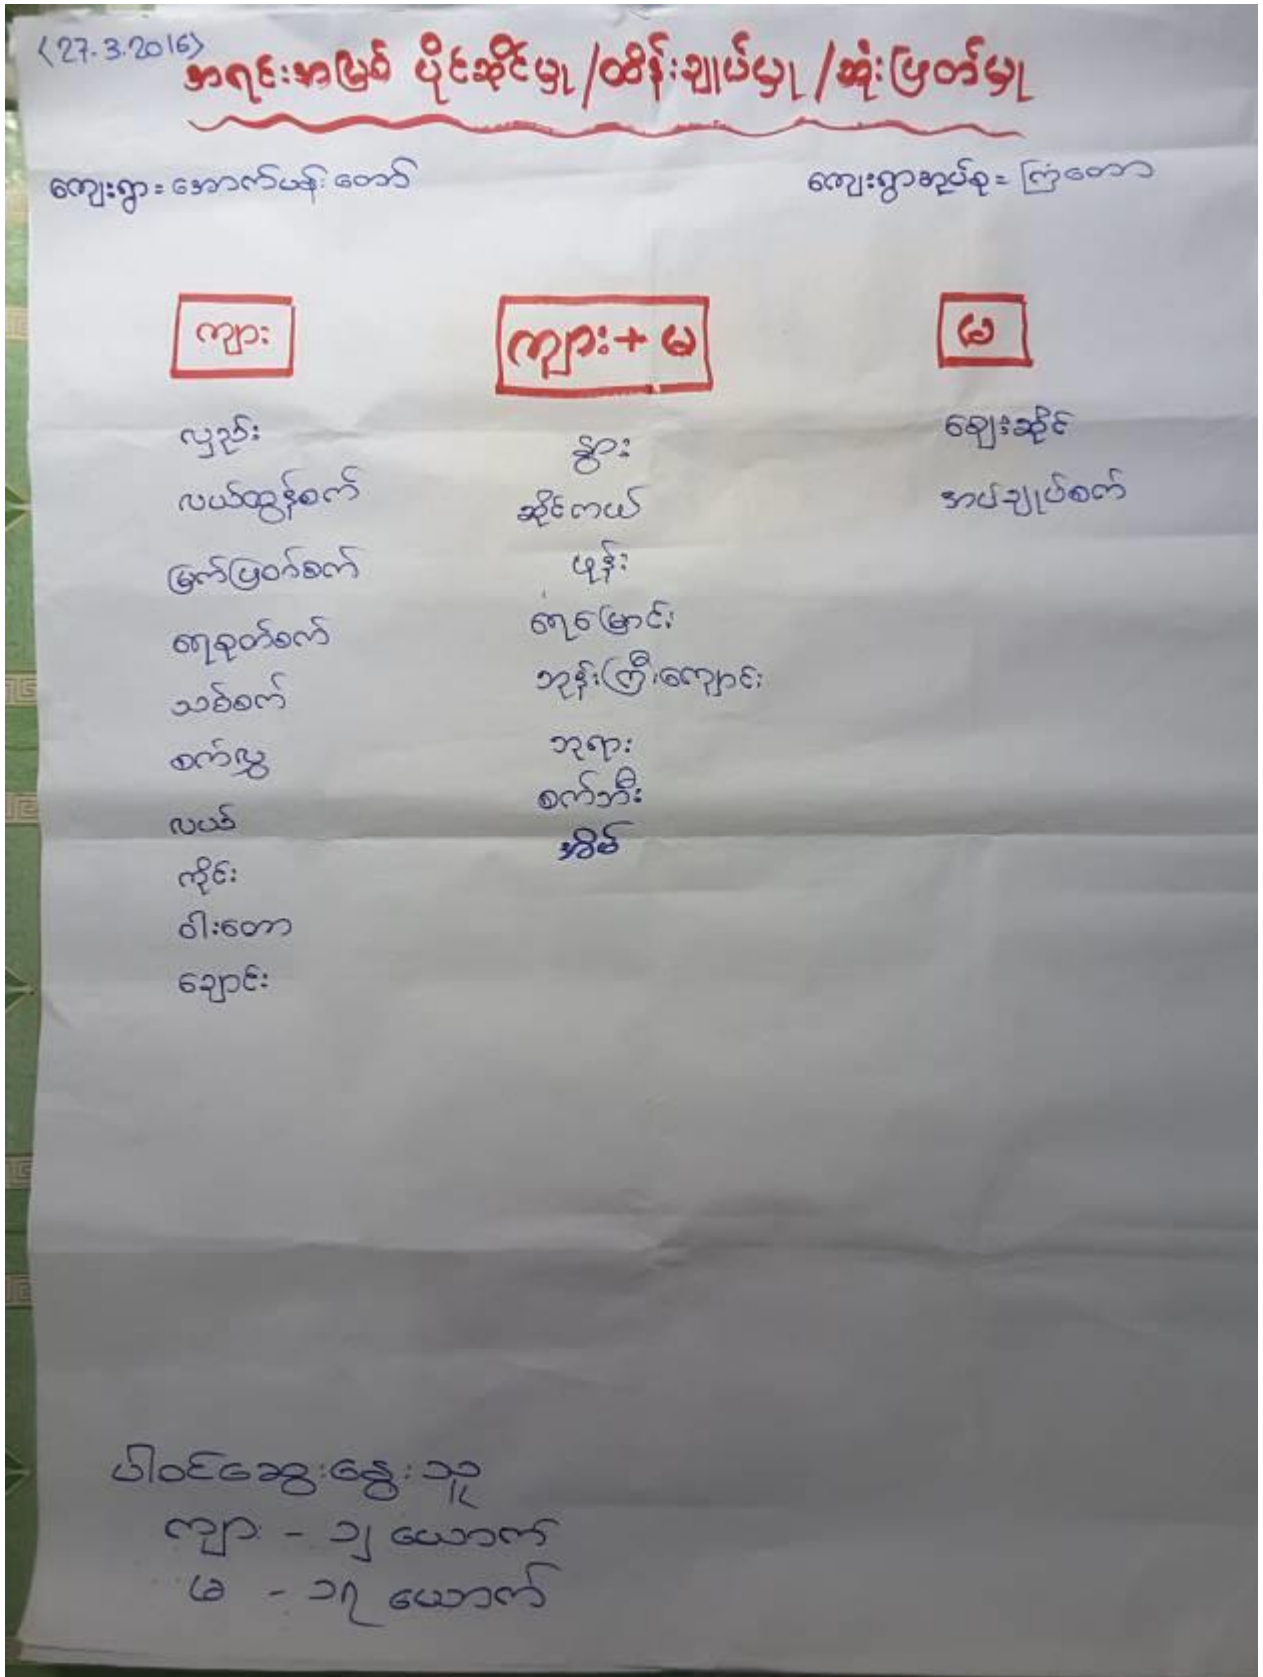 (27.3.2016)
အရင်းအမြစ် ပိုင်ဆိုင်မှု/ထိန်းချုပ်မှု/ဆုံးဖြတ်မှု
ကျေးရွာ = အောက်ပန်းတော် ကျေးရွာအုပ်စု = ကြံတော
ကျား ကျား + မ မ
လှည်း
လယ်ထွန်စက်
မြက်ဖြတ်စက်
ရေစုတ်စက်
သစ်စက်
စက်လှေ
လယ်
ကိုင်း
ဝါးတော
ချောင်း
နွား
ဆိုင်ကယ်
ဖုန်း
ရေမြောင်း
ဘုန်းကြီးကျောင်း
ဘုရား
စက်ဘီး
အိမ်
ဈေးဆိုင်
အပ်ချုပ်စက်
ပါဝင်ဆွေးနွေးသူ
ကျား - ၁၂ ယောက်
မ - ၁၇ ယောက်